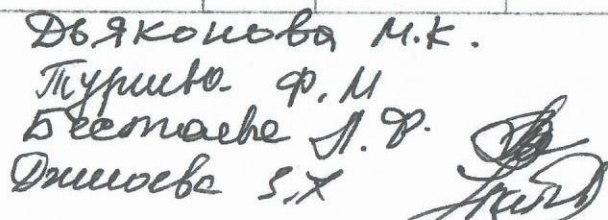 Дьяконова М.К.
Туриева Ф.М
Бестаева Л.Ф.
Джиоева З.Х